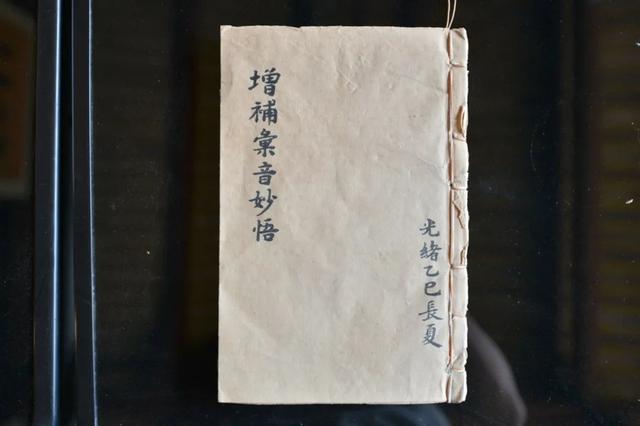 光緒乙巳長夏
增補彙音妙悟